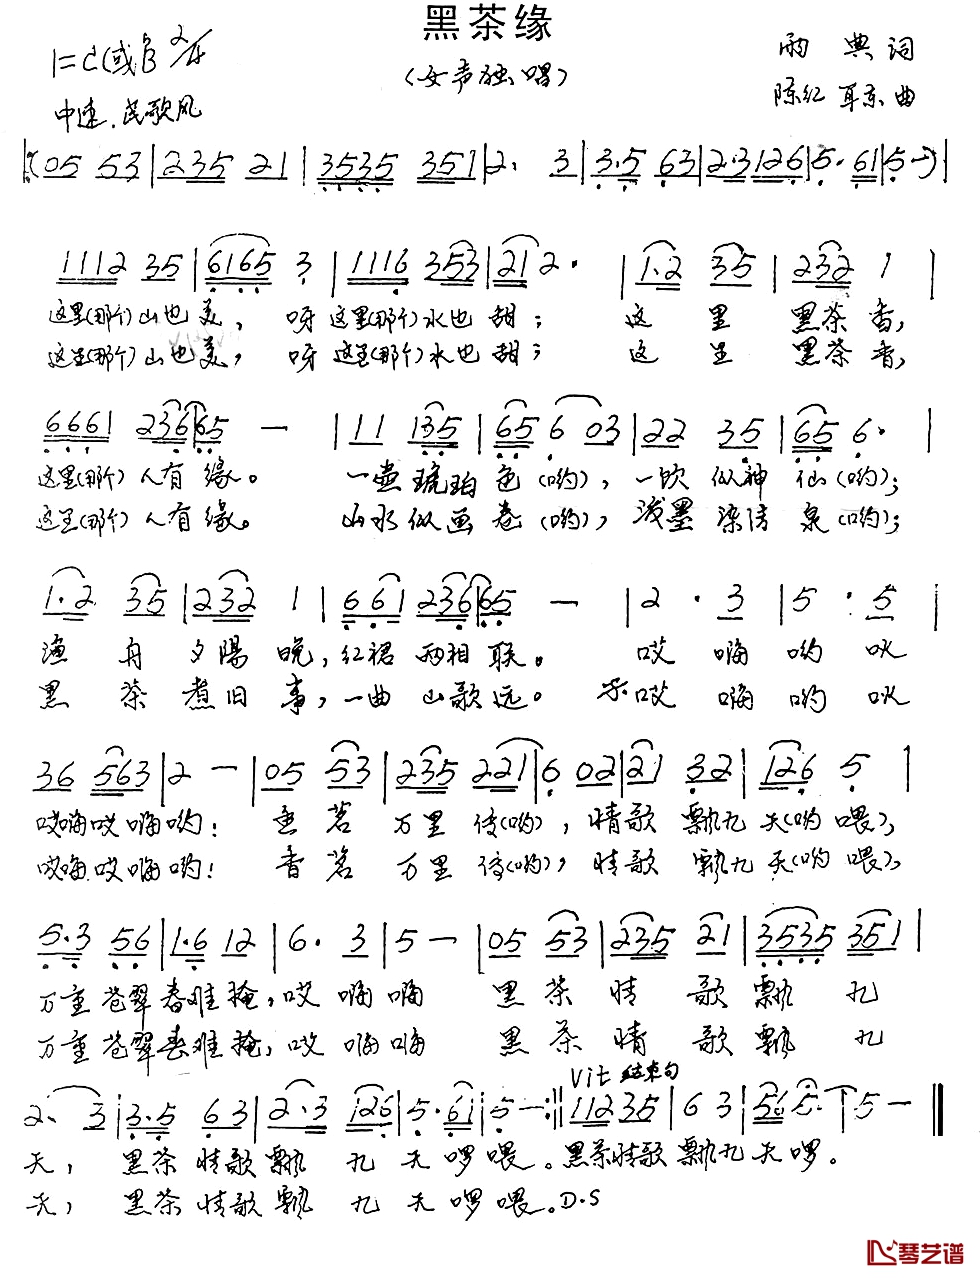 黑茶缘
1=C(或B 2/4
(女声独唱)
雨 典 词
中速.民歌风
陈红 耳东 曲
(05 53|235 21|3535 351|2. 3|3.5 63|2.3 126|5.61|5 -)|
1112 35|6165 3|1116 353|21 2.|1.2 35|232 1|
这里(那个)山也美, 呀这里(那个)水也甜; 这里黑茶香,
这里(那个)山也美, 呀这里(那个)水也甜; 这里黑茶香,
6661 236|65 -|11 135|65 6 03|22 35|65 6.|
这里(那个)人有缘。 一壶琥珀色(哟), 一饮似神仙(哟);
这里(那个)人有缘。 山水似画卷(哟), 浅墨染清泉(哟);
1.2 35|232 1|661 236|65 -|2. 3|5. 5|
渔舟夕阳晚, 红裙两相联。 哎嗨哟吙
黑茶煮旧事, 一曲山歌远。 哎嗨哟吙
36 563|2 -|05 53|235 221|6 02|21 32|126 5|
哎嗨哎嗨哟! 香茗万里传(哟), 情歌飘九天(哟喂),
哎嗨哎嗨哟! 香茗万里传(哟), 情歌飘九天(哟喂),
5.3 56|1.6 12|6. 3|5 -|05 53|235 21|3535 351|
万重苍翠春难掩, 哎嗨嗨 黑茶情歌飘九
万重苍翠春难掩, 哎嗨嗨 黑茶情歌飘九
Vit 结束句
2. 3|3.5 63|2.3 126|5.61|5 -:‖1123 5|6 3|56 5.|5 -‖
天, 黑茶情歌飘九天啰喂。黑茶情歌飘九天啰。
天, 黑茶情歌飘九天啰喂。D.S
琴艺谱